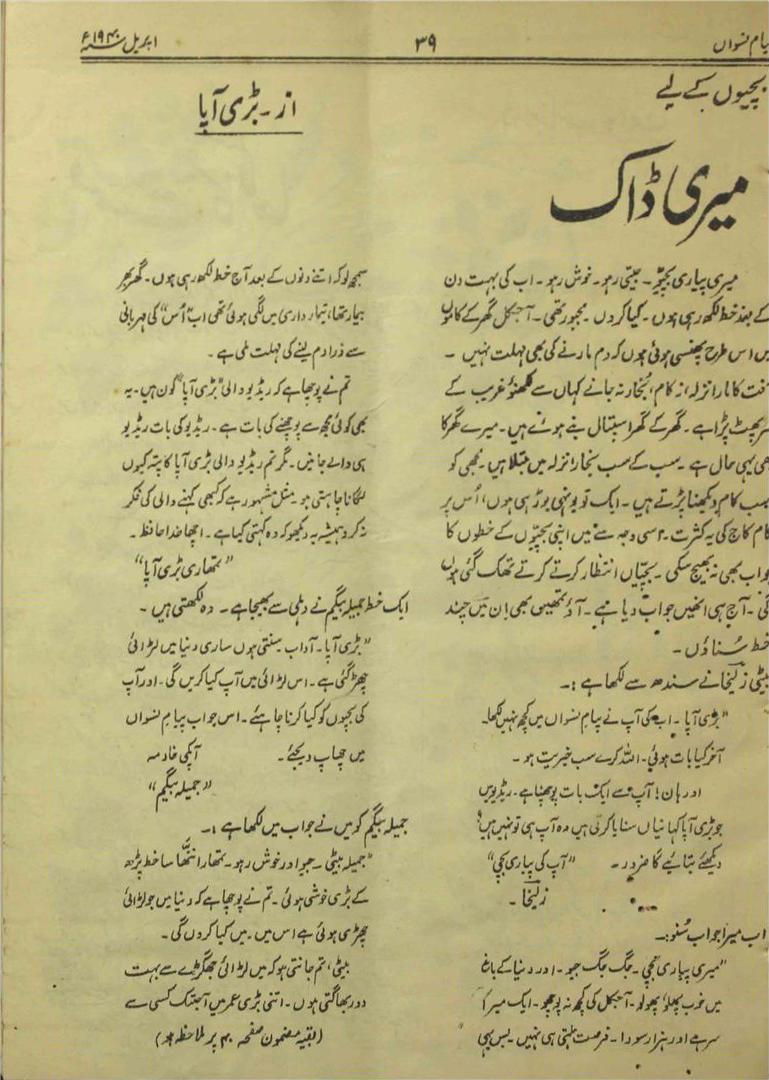 پیام نسواں ۳۹ اپریل سنہ ۱۹۴۰ء
بچیوں کے لیے
میری ڈاک
از۔ بڑی آپا
میری پیاری بچیّو۔ جیتی رہو۔ خوش رہو۔ اب کی بہت دن
کے بعد خط لکھ رہی ہوں۔ کیا کروں۔ مجبور تھی۔ آجکل گھر کے کاموں
میں اس طرح پھنسی ہوئی ہوں کہ دم مارنے کی بھی مہلت نہیں۔
آفت کا مارا نزلہ، زکام، بُخار نہ جانے کہاں سے لکھنؤ غریب کے
سر پھٹ پڑا ہے۔ گھر کے گھر اسپتال بنے ہوئے ہیں۔ میرے گھر کا
بھی یہی حال ہے۔ سب کے سب بخار نزلہ میں مبتلا ہیں۔ مجھی کو
سب کام دیکھنا پڑتے ہیں۔ ایک تو یونہی بوڑھی ہوں، اُس پر
کام کاج کی یہ کثرت۔ اسی وجہ سے میں اپنی بچیّوں کے خطوں کا
جواب بھی نہ بھیج سکی۔ بچیّاں انتظار کرتے کرتے تھک گئی ہوں
گی۔ آج ہی انھیں جواب دیا ہے۔ آؤ تمھیں بھی اِن میں چند
خط سُناؤں۔
بیٹی زلیخا نے سندھ سے لکھا ہے:۔
"بڑی آپا۔ اب کی آپ نے پیام نسواں میں کچھ نہیں لکھا۔
آخر کیا بات ہوئی۔ اللہ کرے سب خیریت ہو۔
اور ہاں! آپ سے ایک بات پوچھنا ہے۔ ریڈیو میں
جو بڑی آپا کہانیاں سنایا کرتی ہیں وہ آپ ہی تو نہیں ہیں؟
دیکھئے بتائیے گا ضرور۔ "آپ کی پیاری بچی"
زلیخا۔
اب میرا جواب سُنو:۔
"میری پیاری بچی۔ جگ جگ جیو۔ اور دنیا کے باغ
میں خوب پھلو پھولو۔ آجکل کی کچھ نہ پوچھو۔ ایک میرا
سر ہے اور ہزار سودا۔ فرصت ملتی ہی نہیں۔ بس یہی
سمجھ لو کہ اتنے دنوں کے بعد آج خط لکھ رہی ہوں۔ گھر بھر
بیمار تھا، تیمارداری میں لگی ہوئی تھی اب "اُس" کی مہربانی
سے ذرا دم لینے کی مہلت ملی ہے۔
تم نے پوچھا ہے کہ ریڈیو والی "بڑی آپا" کون ہیں۔ یہ
بھی کوئی مجھ سے پوچھنے کی بات ہے۔ ریڈیو کی بات ریڈیو
ہی والے جانیں۔ مگر تم ریڈیو والی بڑی آپا کا پتہ کیوں
لگانا چاہتی ہو۔ مثل مشہور ہے کہ کبھی کہنے والی کی فکر
نہ کرو ہمیشہ یہ دیکھو کہ وہ کہتی کیا ہے۔ اچھا خدا حافظ۔
"تمھاری بڑی آپا"
ایک خط جمیلہ بیگم نے دہلی سے بھیجا ہے۔ وہ لکھتی ہیں۔
"بڑی آپا۔ آداب۔ سنتی ہوں ساری دنیا میں لڑائی
چھڑ گئی ہے۔ اس لڑائی میں آپ کیا کریں گی۔ اور آپ
کی بچیوں کو کیا کرنا چاہئے۔ اس جواب پیام نسواں
میں چھاپ دیجئے۔ آپکی خادمہ
"جمیلہ بیگم"
جمیلہ بیگم کو میں نے جواب میں لکھا ہے:۔
"جمیلہ بیٹی۔ جیو اور خوش رہو۔ تمھارا ننھّا سا خط پڑھ
کے بڑی خوشی ہوئی۔ تم نے پوچھا ہے کہ دنیا میں جو لڑائی
چھڑی ہوئی ہے اس میں۔ میں کیا کروں گی۔
بیٹی، تم جانتی ہو کہ میں لڑائی جھگڑے سے بہت
دور بھاگتی ہوں۔ اتنی بڑی عمر میں آجتک کسی سے
(بقیہ مضمون صفحہ ۴۰ پر ملاحظہ ہو)